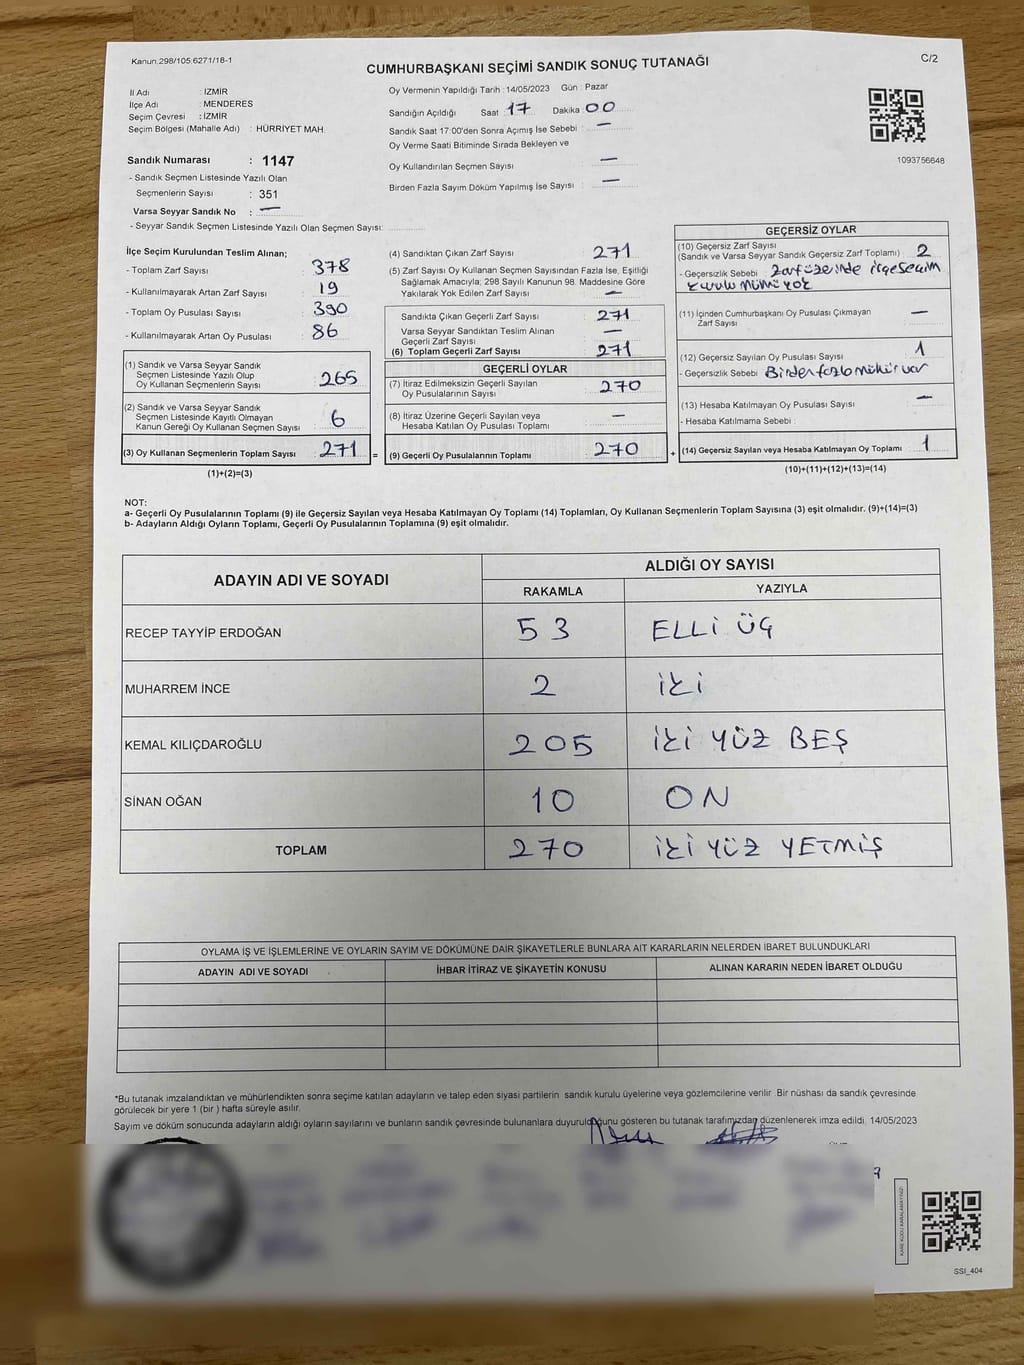 Kanun.298/105.6271/18-1
C/2
CUMHURBAŞKANI SEÇİMİ SANDIK SONUÇ TUTANAĞI
İl Adı : İZMİR
İlçe Adı : MENDERES
Seçim Çevresi : İZMİR
Seçim Bölgesi (Mahalle Adı) : HÜRRİYET MAH.
Oy Vermenin Yapıldığı Tarih : 14/05/2023 Gün : Pazar
Sandığın Açıldığı Saat : 17 Dakika : 00
Sandık Saat 17:00'den Sonra Açımış İse Sebebi : —
Oy Verme Saati Bitiminde Sırada Bekleyen ve
Oy Kullandırılan Seçmen Sayısı : —
Birden Fazla Sayım Döküm Yapılmış İse Sayısı : —
1093756648
Sandık Numarası : 1147
- Sandık Seçmen Listesinde Yazılı Olan
Seçmenlerin Sayısı : 351
Varsa Seyyar Sandık No : —
- Seyyar Sandık Seçmen Listesinde Yazılı Olan Seçmen Sayısı:
İlçe Seçim Kurulundan Teslim Alınan;
- Toplam Zarf Sayısı : 378
- Kullanılmayarak Artan Zarf Sayısı : 19
- Toplam Oy Pusulası Sayısı : 390
- Kullanılmayarak Artan Oy Pusulası : 86
(1) Sandık ve Varsa Seyyar Sandık
Seçmen Listesinde Yazılı Olup
Oy Kullanan Seçmenlerin Sayısı : 265
(2) Sandık ve Varsa Seyyar Sandık
Seçmen Listesinde Kayıtlı Olmayan
Kanun Gereği Oy Kullanan Seçmen Sayısı : 6
(3) Oy Kullanan Seçmenlerin Toplam Sayısı : 271 =
(1)+(2)=(3)
(4) Sandıktan Çıkan Zarf Sayısı : 271
(5) Zarf Sayısı Oy Kullanan Seçmen Sayısından Fazla İse, Eşitliği
Sağlamak Amacıyla; 298 Sayılı Kanunun 98. Maddesine Göre
Yakılarak Yok Edilen Zarf Sayısı : —
Sandıkta Çıkan Geçerli Zarf Sayısı : 271
Varsa Seyyar Sandıktan Teslim Alınan
Geçerli Zarf Sayısı : —
(6) Toplam Geçerli Zarf Sayısı : 271
GEÇERLİ OYLAR
(7) İtiraz Edilmeksizin Geçerli Sayılan
Oy Pusulalarının Sayısı : 270
(8) İtiraz Üzerine Geçerli Sayılan veya
Hesaba Katılan Oy Pusulası Toplamı : —
(9) Geçerli Oy Pusulalarının Toplamı : 270 +
GEÇERSİZ OYLAR
(10) Geçersiz Zarf Sayısı
(Sandık ve Varsa Seyyar Sandık Geçersiz Zarf Toplamı) : 2
- Geçersizlik Sebebi : Zarf üzerinde ilçe seçim
kurulu mührü yok
(11) İçinden Cumhurbaşkanı Oy Pusulası Çıkmayan
Zarf Sayısı : —
(12) Geçersiz Sayılan Oy Pusulası Sayısı : 1
- Geçersizlik Sebebi : Birden fazla mühür var
(13) Hesaba Katılmayan Oy Pusulası Sayısı : —
- Hesaba Katılmama Sebebi :
(14) Geçersiz Sayılan veya Hesaba Katılmayan Oy Toplamı : 1
(10)+(11)+(12)+(13)=(14)
NOT:
a- Geçerli Oy Pusulalarının Toplamı (9) ile Geçersiz Sayılan veya Hesaba Katılmayan Oy Toplamı (14) Toplamları, Oy Kullanan Seçmenlerin Toplam Sayısına (3) eşit olmalıdır. (9)+(14)=(3)
b- Adayların Aldığı Oyların Toplamı, Geçerli Oy Pusulalarının Toplamına (9) eşit olmalıdır.
ADAYIN ADI VE SOYADI
ALDIĞI OY SAYISI
RAKAMLA YAZIYLA
RECEP TAYYİP ERDOĞAN 53 ELLİ ÜÇ
MUHARREM İNCE 2 İKİ
KEMAL KILIÇDAROĞLU 205 İKİ YÜZ BEŞ
SİNAN OĞAN 10 ON
TOPLAM 270 İKİ YÜZ YETMİŞ
OYLAMA İŞ VE İŞLEMLERİNE VE OYLARIN SAYIM VE DÖKÜMÜNE DAİR ŞİKAYETLERLE BUNLARA AİT KARARLARIN NELERDEN İBARET BULUNDUKLARI
ADAYIN ADI VE SOYADI İHBAR İTİRAZ VE ŞİKAYETİN KONUSU ALINAN KARARIN NEDEN İBARET OLDUĞU
*Bu tutanak imzalandıktan ve mühürlendikten sonra seçime katılan adayların ve talep eden siyasi partilerin sandık kurulu üyelerine veya gözlemcilerine verilir. Bir nüshası da sandık çevresinde
görülecek bir yere 1 (bir ) hafta süreyle asılır.
Sayım ve döküm sonucunda adayların aldığı oyların sayılarını ve bunların sandık çevresinde bulunanlara duyurulduğunu gösteren bu tutanak tarafımızdan düzenlenerek imza edildi. 14/05/2023
KARE KODU KARALAMAYINIZ!
SSI_404